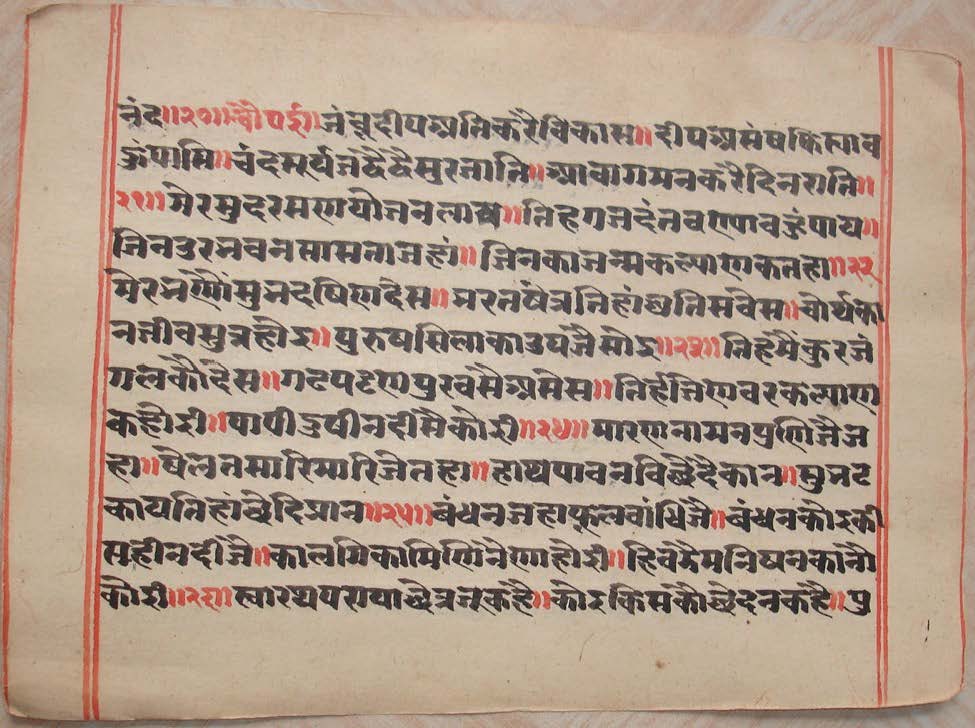 नंद॥२०॥चौपई॥जंबूदीपअतिकरैविकास॥दीपअसंषकित्याव
ऊंपासि॥चंदसूर्यजद्वैद्वैसुरजानि॥आवागमनकरैदिनराति॥
२१॥मेरसुदरसणयोजनलाष॥तिहगजदंतवणावऊंपाय॥
जिनउरनचनसासताजहां॥जिनकाजन्मकल्याणकतहा॥२२
मेरभणौंसुभदषिणदेस॥भरतषेत्रतिहांअतिसवेस॥चौर्थका
नजीवसुभहोइ॥पुरुषसिलाकाउपजैसोइ॥२३॥तिहमैंकुरजं
गलकौदेस॥गढपट्टणपुरवसैअसेस॥तिहंजिणवरकल्याण
कहोरी॥पापीदुषीनदीसैकोरी॥२४॥मारणनामनपुणिजैज
हा॥षेलतसारिमारिजेतहा॥हाथपावनविछेदैकान॥सुभट
कायतिहांछेदिप्रान॥२५॥बंधनजहाफुलवांधिजै॥बंधनकोइकी
सहीनदीजै॥कालगिकामिणिनैणाहोरी॥हिवेडैमनिषनकानौ
कोरी॥२६॥स्वारथपरायाछेत्रजुकहै॥कोइकिसकौछेदनकहै॥पु